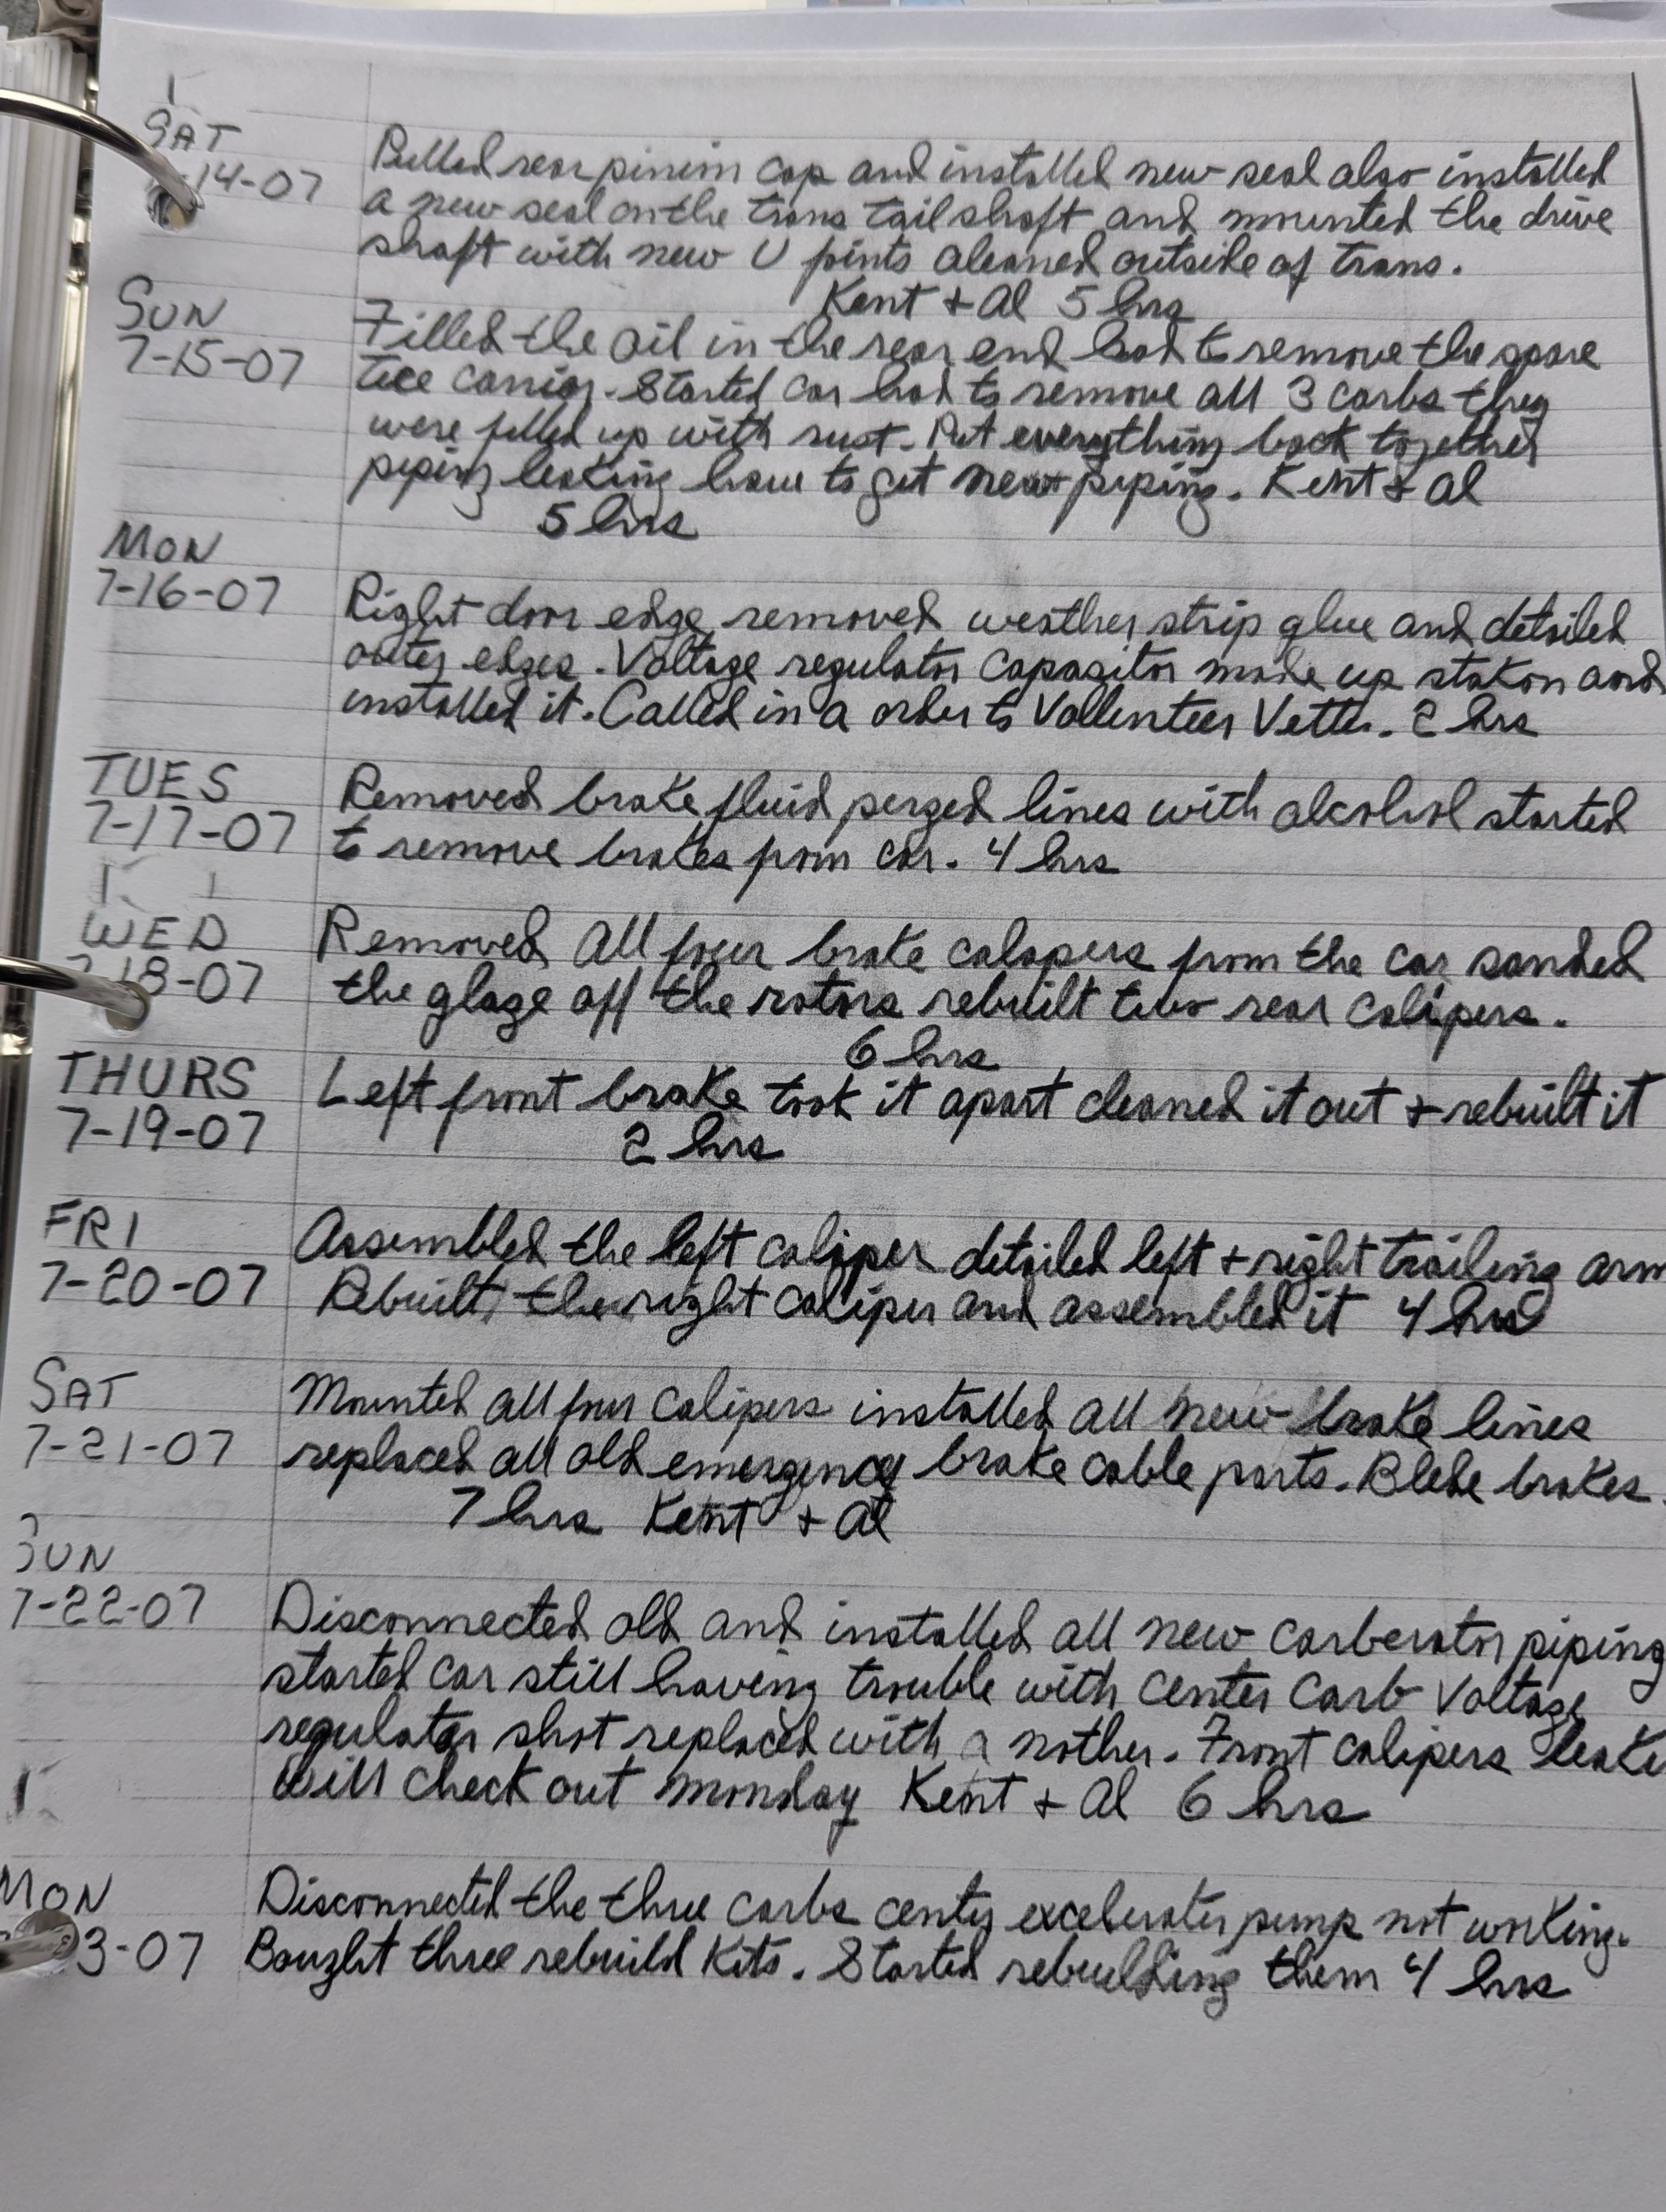 SAT
-14-07
Pulled rear pinion cap and installed new seal also installed
a new seal on the trans tail shaft and mounted the drive
shaft with new U joints cleaned outside of trans.
Kent + Al 5 hrs
SUN
7-15-07
Filled the oil in the rear end had to remove the spare
tire carrior. Started car had to remove all 3 carbs they
were filled up with rust. Put everything back together
piping leaking have to get new piping. Kent + Al
5 hrs
MON
7-16-07
Right door edge removed weather strip glue and detailed
outer edges. Voltage regulator capacitor made up stakon and
installed it. Called in a order to Vollenteer Vette. 2 hrs
TUES
7-17-07
Removed brake fluid perged lines with alcohol started
to remove brakes from car. 4 hrs
WED
7-18-07
Removed all four brake calapers from the car sanded
the glaze off the rotors rebuilt two rear calipers.
6 hrs
THURS
7-19-07
Left front brake took it apart cleaned it out + rebuilt it
2 hrs
FRI
7-20-07
Assembled the left caliper detailed left + right trailing arm
Rebuilt the right caliper and assembled it 4 hrs
SAT
7-21-07
Mounted all four calipers installed all new brake lines
replaced all old emergency brake cable parts. Blede brakes.
7 hrs Kent + Al
SUN
7-22-07
Disconnected old and installed all new carberator piping
started car still having trouble with center carb voltage
regulator shot replaced with a nother. Front calipers leake
will check out monday Kent + Al 6 hrs
MON
3-07
Disconnected the three carbs center excelerater pump not working.
Bought three rebuild kits. Started rebuilding them 4 hrs